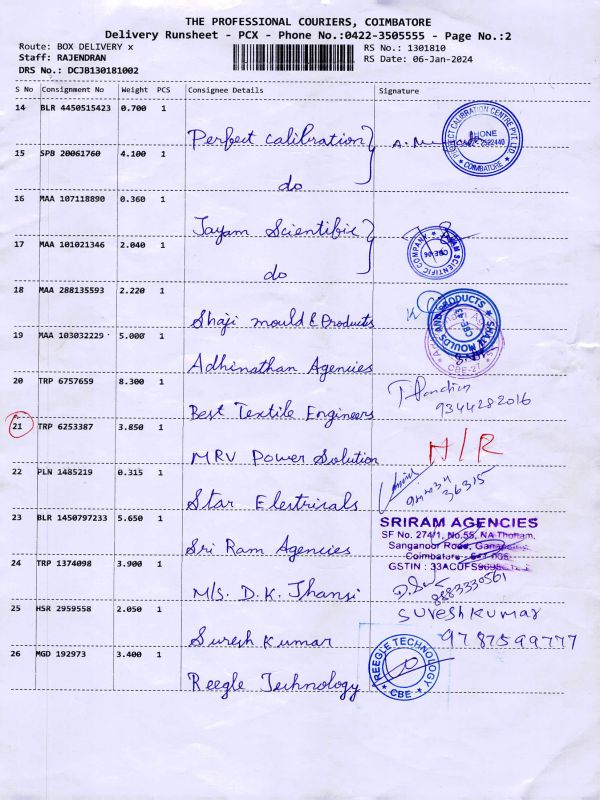 THE PROFESSIONAL COURIERS, COIMBATORE
Delivery Runsheet - PCX - Phone No.:0422-3505555 - Page No.:2
Route: BOX DELIVERY x RS No.: 1301810
Staff: RAJENDRAN RS Date: 06-Jan-2024
DRS No.: DCJB130181002
S No Consignment No Weight PCS Consignee Details Signature
14 BLR 4450515423 0.700 1
Perfect calibration
15 SPB 20061760 4.100 1
do
16 MAA 107118890 0.360 1
Jayam Scientific
17 MAA 101021346 2.040 1
do
18 MAA 288135593 2.220 1
Shaji mould & Products
19 MAA 103032229 5.000 1
Adhinathan Agencies
20 TRP 6757659 8.300 1
9344282016
Best Textile Engineers
21 TRP 6253387 3.850 1
N/R
MRV Power Solution
22 PLN 1485219 0.315 1
36315
Star Electricals
23 BLR 1450797233 5.650 1
SRIRAM AGENCIES
SF No. 274/1, No.55, NA Thottam,
Sanganoor Road, Ganapathy,
Coimbatore - 641 006.
Sri Ram Agencies
24 TRP 1374098 3.900 1
8883330561
M/s. D.K. Jhansi
25 HSR 2959558 2.050 1
SURESH KUMAR
9787599777
Suresh Kumar
26 MGD 192973 3.400 1
REEGLE TECHNOLOGY
CBE
Reegle Technology